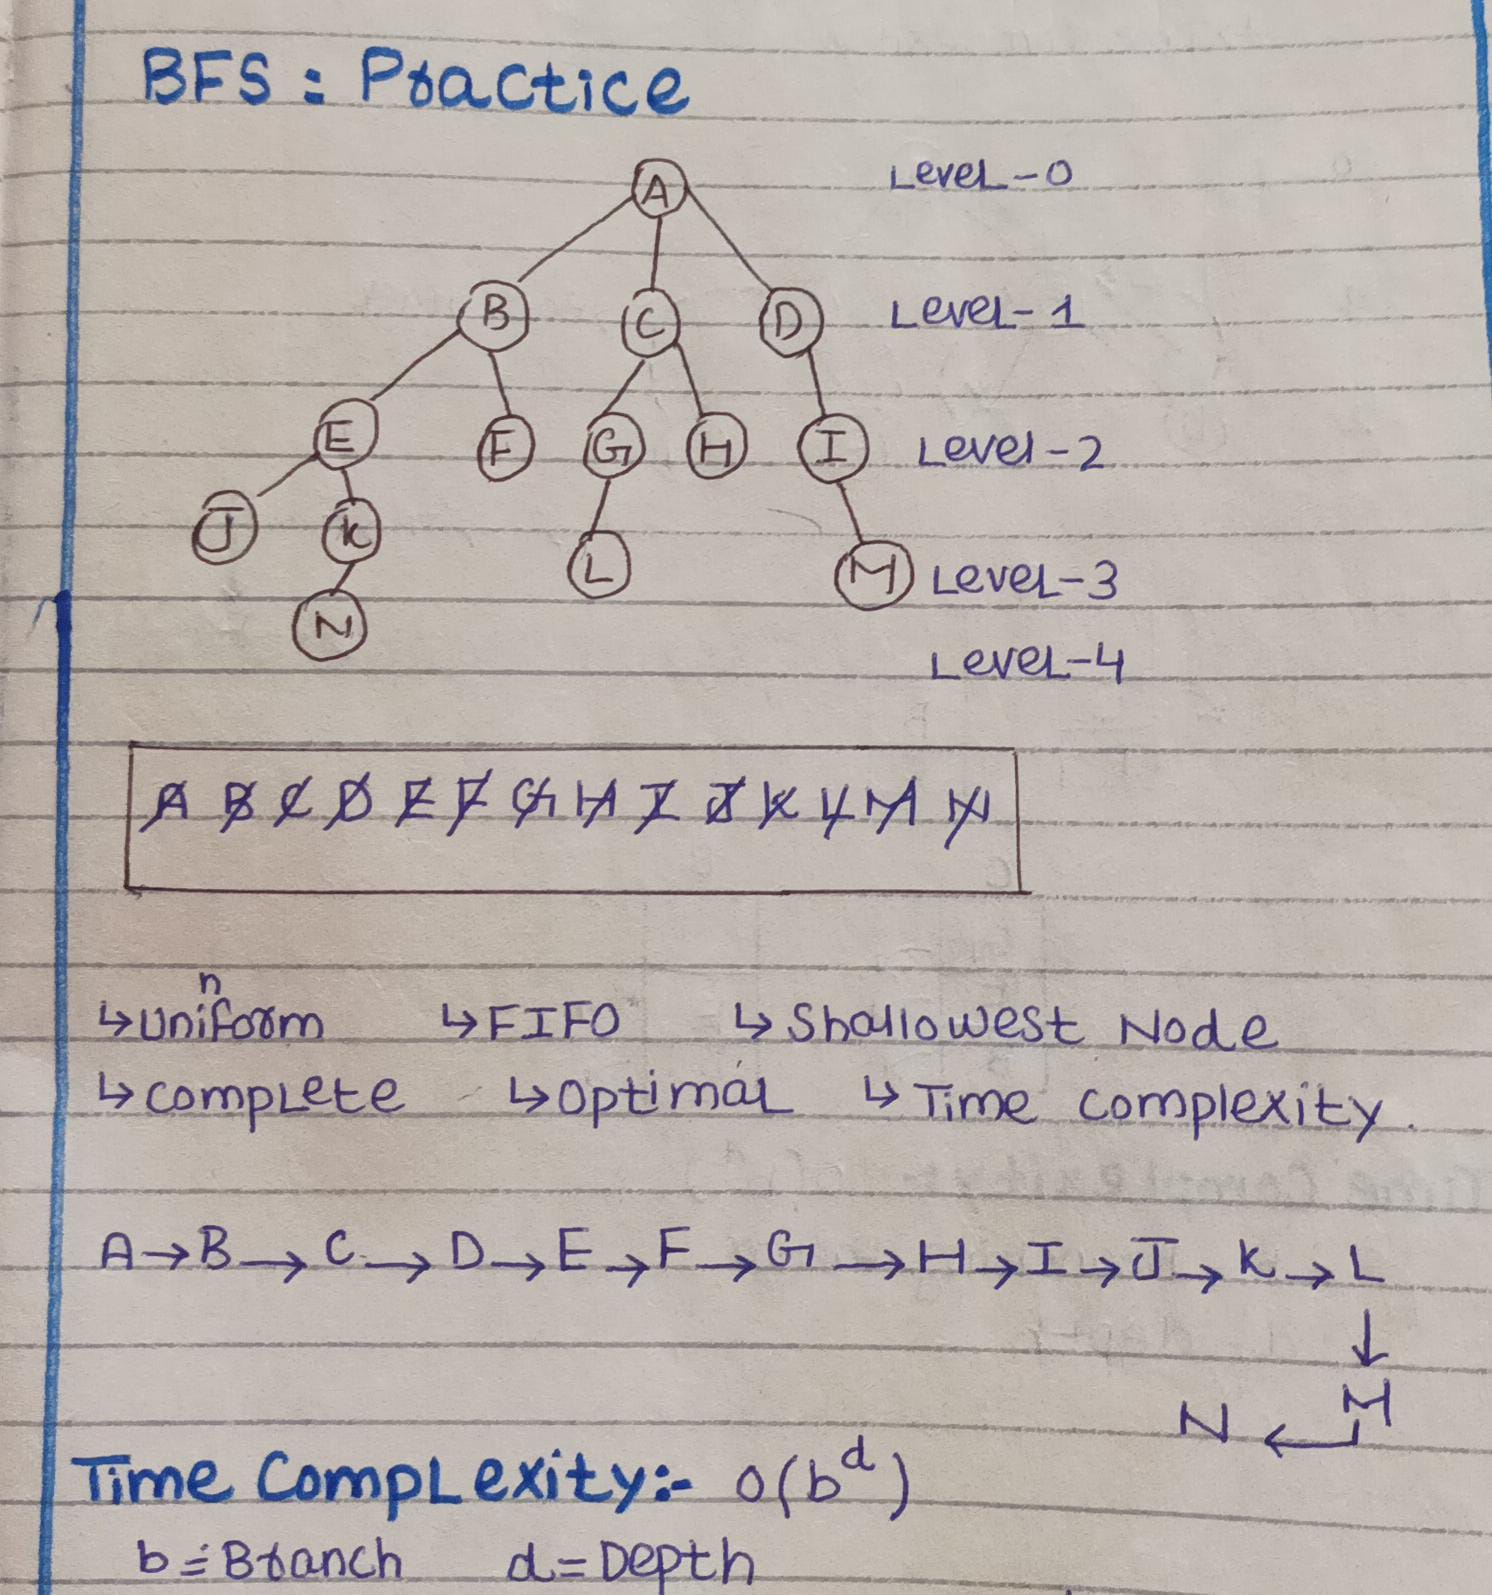 BFS : Practice
A Level-0
B C D Level-1
E F G H I Level-2
J K L M Level-3
N Level-4
A B C D E F G H I J K L M N
n
↳Uniform ↳FIFO ↳Shallowest Node
↳Complete ↳Optimal ↳Time Complexity.
A→B→C→D→E→F→G→H→I→J→K→L
↓
N ← M
Time Complexity:- O(b^d)
b = Branch d = Depth